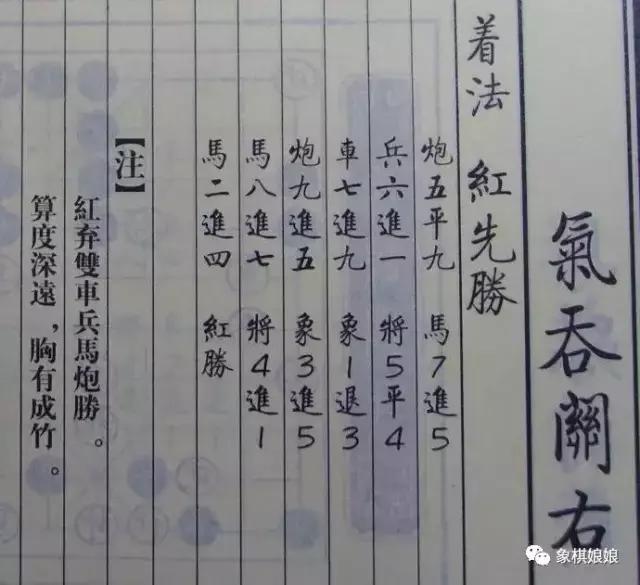 氣吞關右
着法 紅先勝
炮五平九 馬7進5
兵六進一 將5平4
車七進九 象1退3
炮九進五 象3進5
馬八進七 將4進1
馬二進四 紅勝
【注】
紅弃雙車兵馬炮勝。
算度深遠，胸有成竹。
象棋娘娘